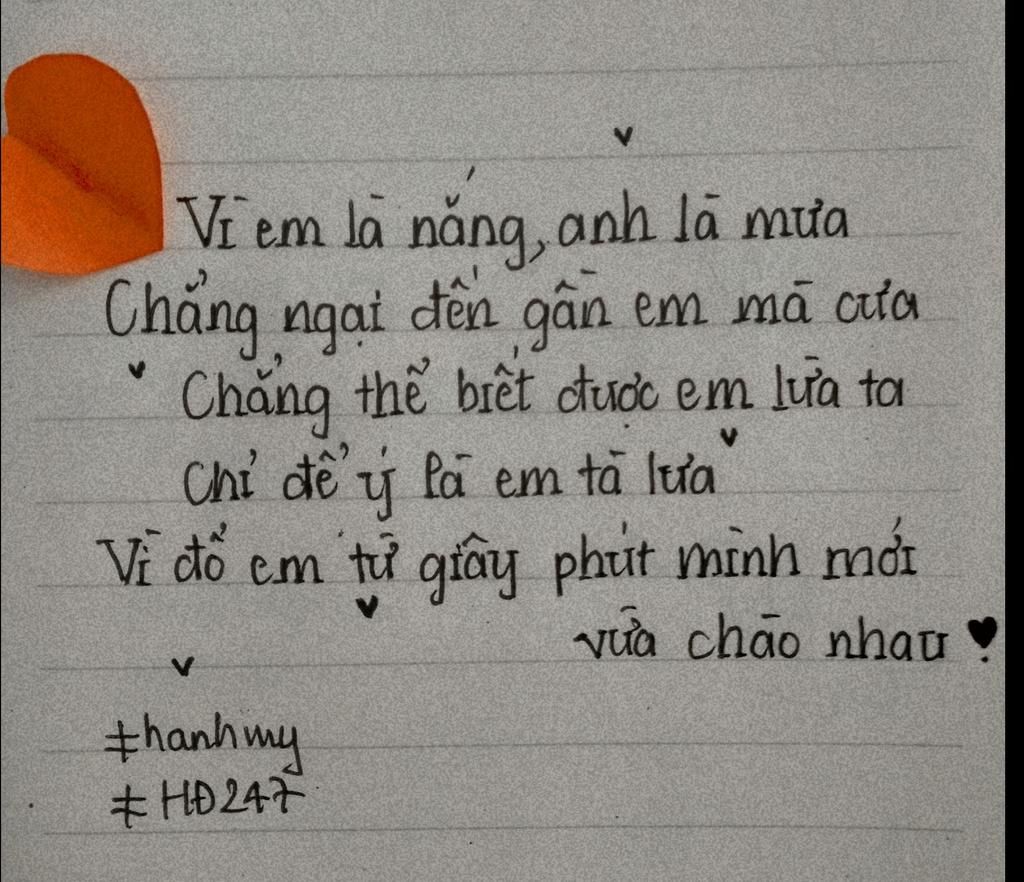 Vì em là nắng, anh là mưa
Chẳng ngại đến gần em mà cưa
Chẳng thể biết được em lừa ta
Chỉ để ý là em tà lưa
Vì đổ em từ giây phút mình mới
vừa chào nhau
#hanhmy
#HĐ247